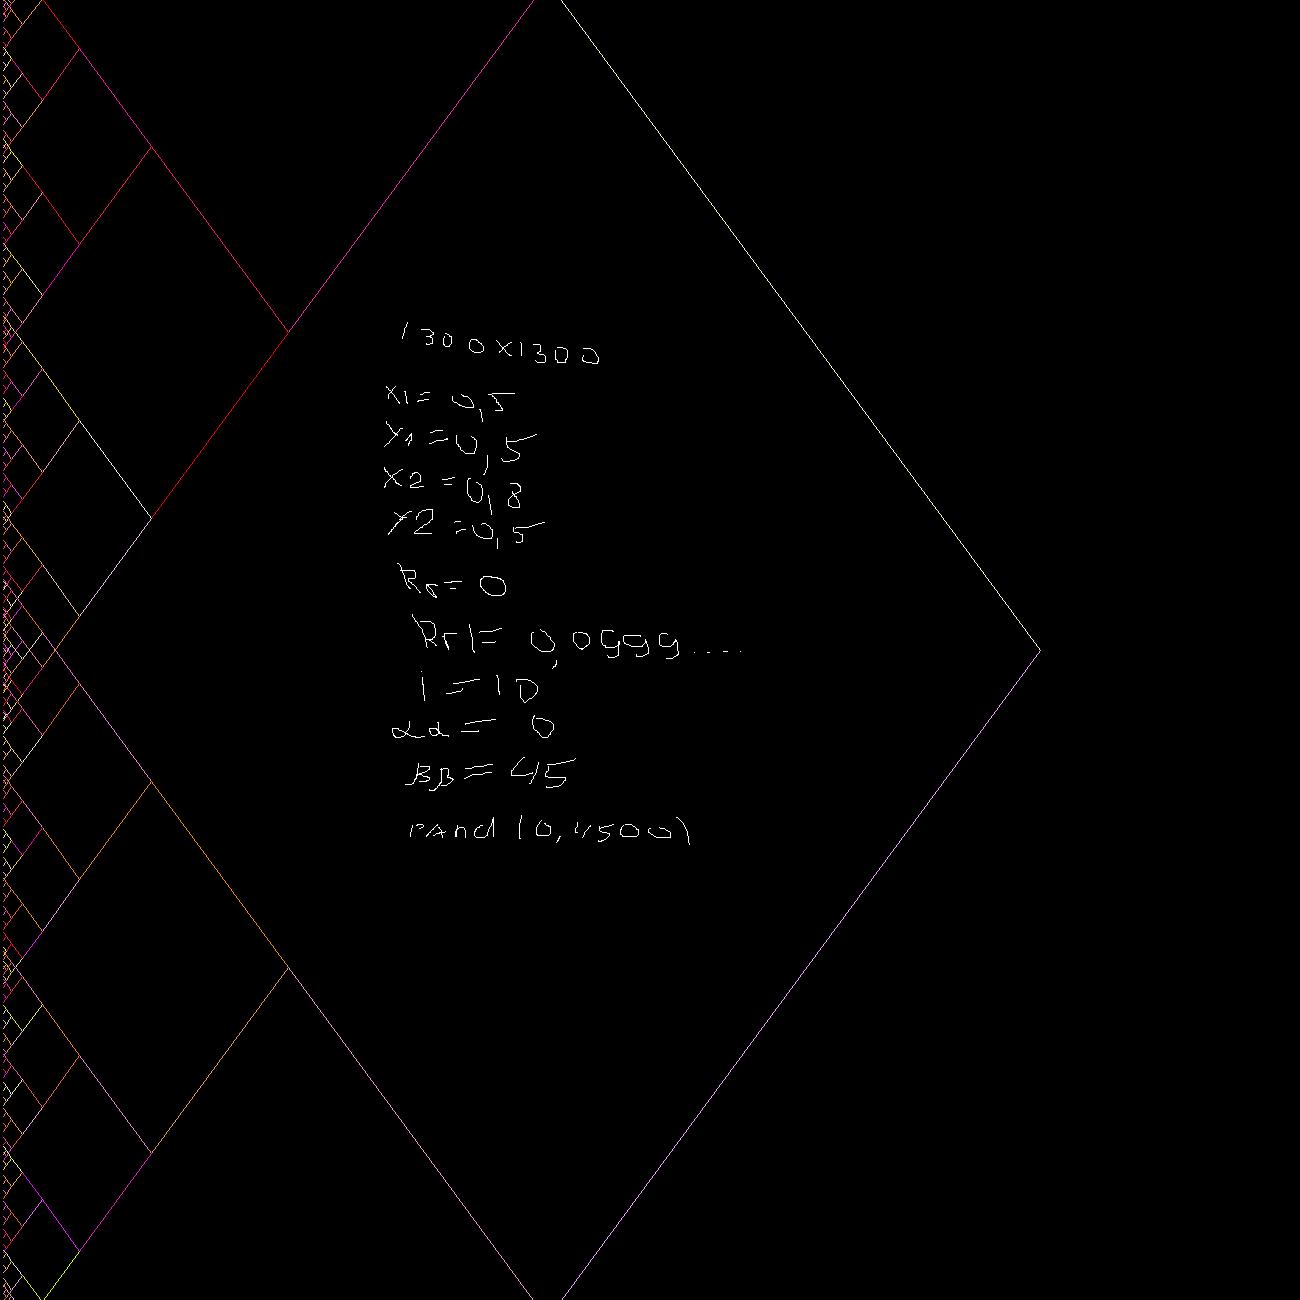 1300x1300
x1= 0,5
y1=0,5
x2=0,8
y2=0,5
Rr= 0
Rr1= 0,0999....
i=10
αα= 0
BB= 45
rand(0,4500)